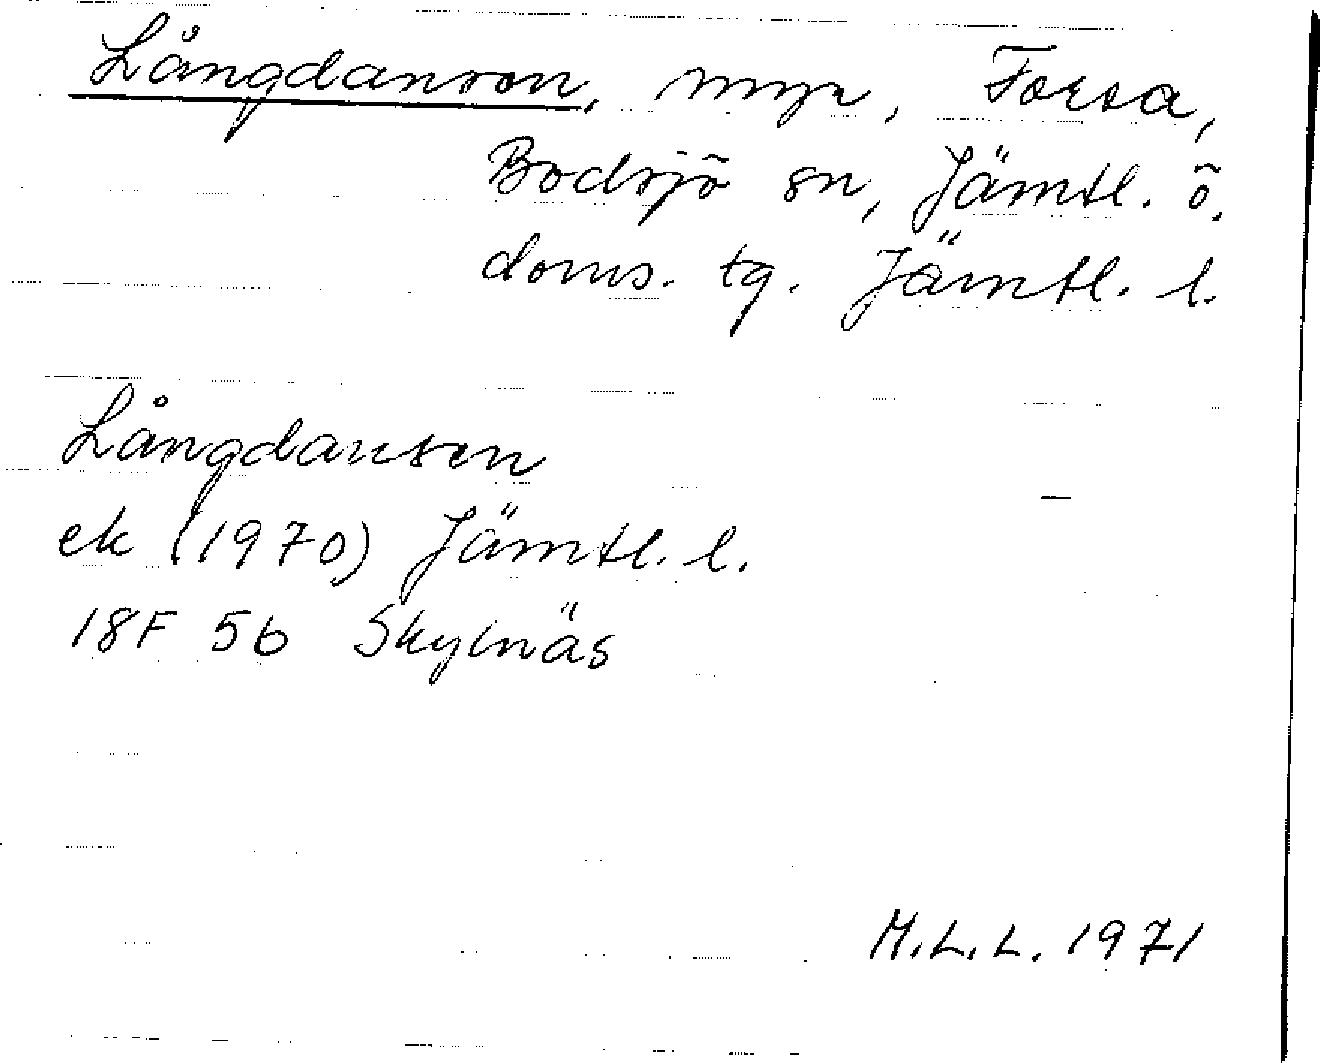 Långdansen, myr, Forsa,
Bodsjö sn, Jämtl. ö.
doms. tg. Jämtl. l.
Långdansen
ek (1970) Jämtl. l.
18F 5b Skylnäs
M.L.L. 1971